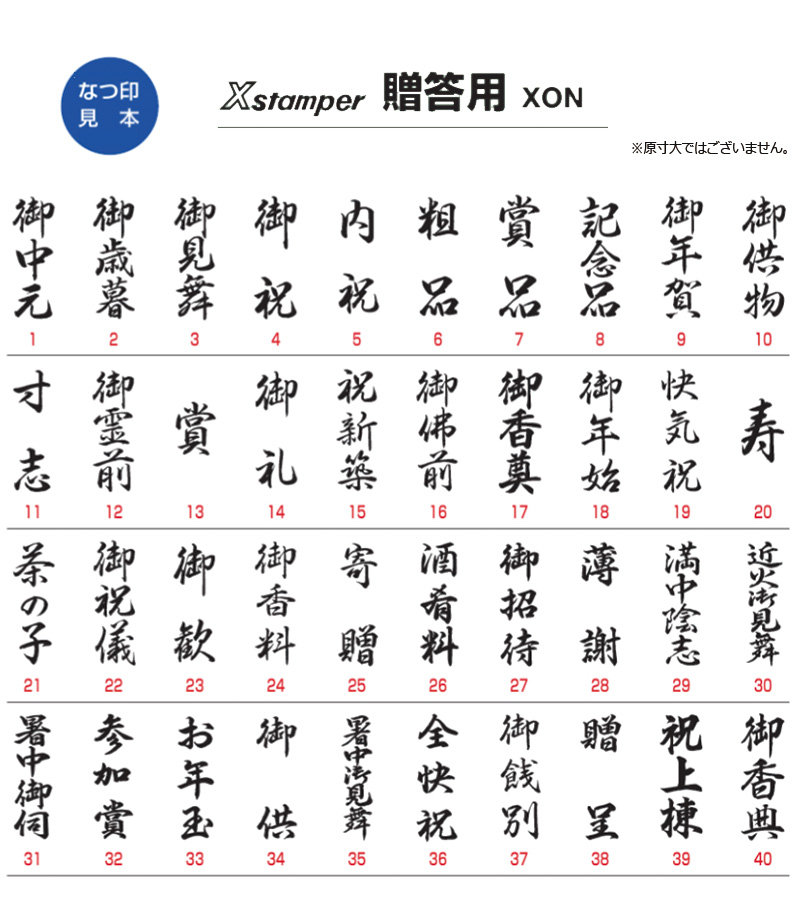 なつ印
見本
Xstamper 贈答用 XON
※原寸大ではございません。
御中元
1
御歳暮
2
御見舞
3
御祝
4
内祝
5
粗品
6
賞品
7
記念品
8
御年賀
9
御供物
10
寸志
11
御霊前
12
賞
13
御礼
14
祝新築
15
御佛前
16
御香奠
17
御年始
18
快気祝
19
寿
20
茶の子
21
御祝儀
22
御歓
23
御香料
24
寄贈
25
酒肴料
26
御招待
27
薄謝
28
満中陰志
29
近火御見舞
30
暑中御伺
31
参加賞
32
お年玉
33
御供
34
暑中御見舞
35
全快祝
36
御餞別
37
贈呈
38
祝上棟
39
御香典
40